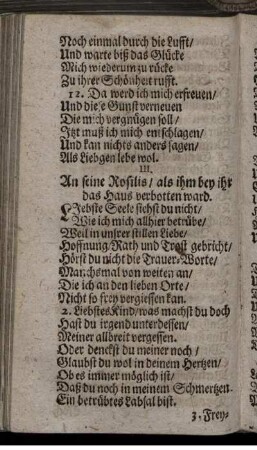 Noch einmal durch die Lufft/
Und warte biß das Glücke
Mich wiederum zu rücke
Zu ihrer Schönheit rufft.
12. Da werd ich mich erfreuen/
Und diese Gunst verneuen
Die mich vergnügen soll/
Itzt muß ich mich entschlagen/
Und kan nichts anders sagen/
Als Liebgen lebe wol.
III.
An seine Rosilis/ als ihm bey ihr
das Haus verbotten ward.
LIebste Seele siehst du nicht/
Wie ich mich allhier betrübe/
Weil in unsrer stillen Liebe/
Hoffnung/ Rath und Trost gebricht/
Hörst du nicht die Trauer-Worte/
Manchsmal von weiten an/
Die ich an den lieben Orte/
Nicht so frey vergiessen kan.
2. Liebstes Kind/ was machst du doch
Hast du irgend unterdessen/
Meiner allbreit vergessen.
Oder denckst du meiner noch/
Glaubst du wol in deinem Hertzen/
Ob es immer möglich ist/
Daß du noch in meinem Schmertzen
Ein betrübtes Labsal bist.
3. Frey-